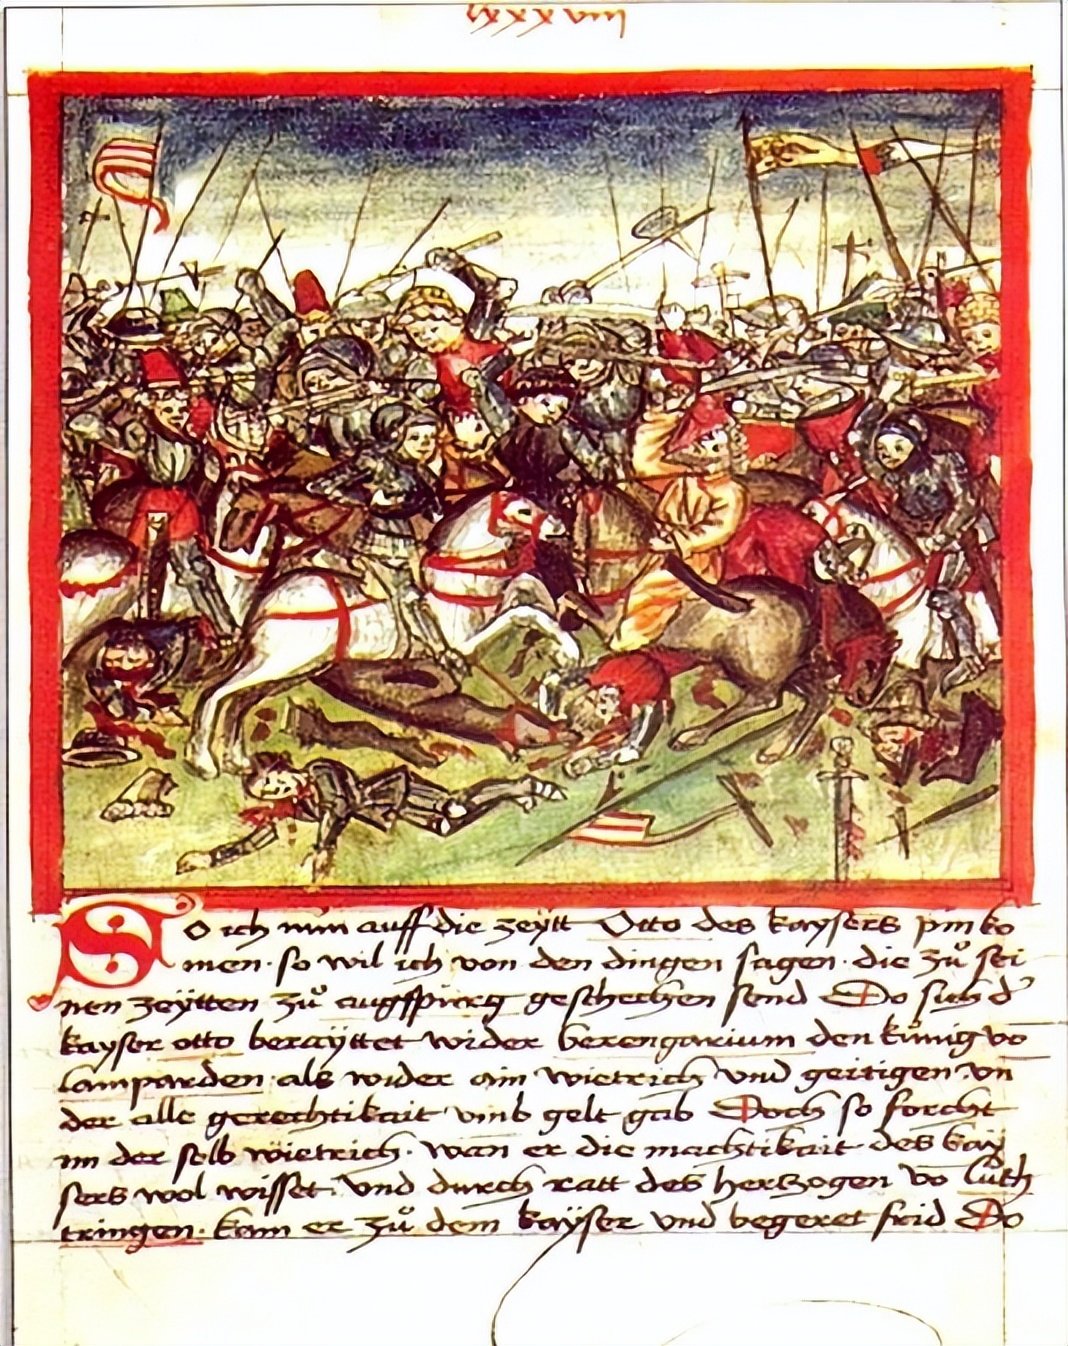 lxxxviii
So ich nun auff die zeytt Otto des kaysers pin ko
men · so wil ich von den dingen sagen · die zuͦ sei
nen zeÿtten zuͦ augspurg geschechen send Do sich dʼ
kayser otto beraÿttet wider berengarium den künig vō
lamparden · als wider ain wietrich vnd geitigen · vn
der alle gerechtikait vmb gelt gab Doch so forcht
im der selb wietrich · wan er die machtikait des kaÿ
sers wol wisset · Vnd durch ratt des herzogen vō luth
tringen · kam er zuͦ dem kaÿser vnd begeret frid Do